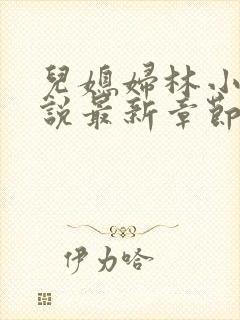 兒媳婦林小
說最新章節
伊力哈